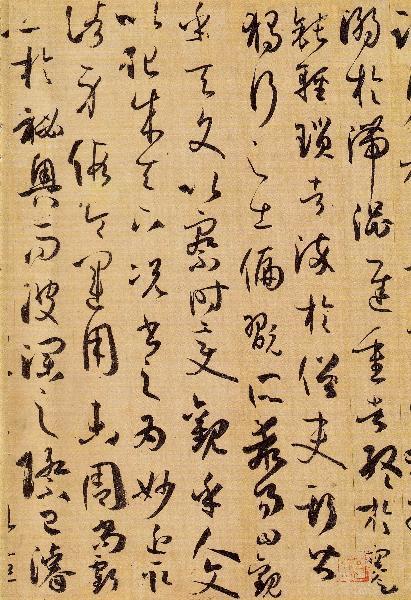 溺於滯澀遲重者終於蹇
鈍輕瑣者染於俗吏斯皆
獨行之士偏翫所乖易曰觀
乎天文以察時變觀乎人文
以化成天下況書之為妙近取
諸身假令運用未周尚虧
工於祕奧而波瀾之際已濬